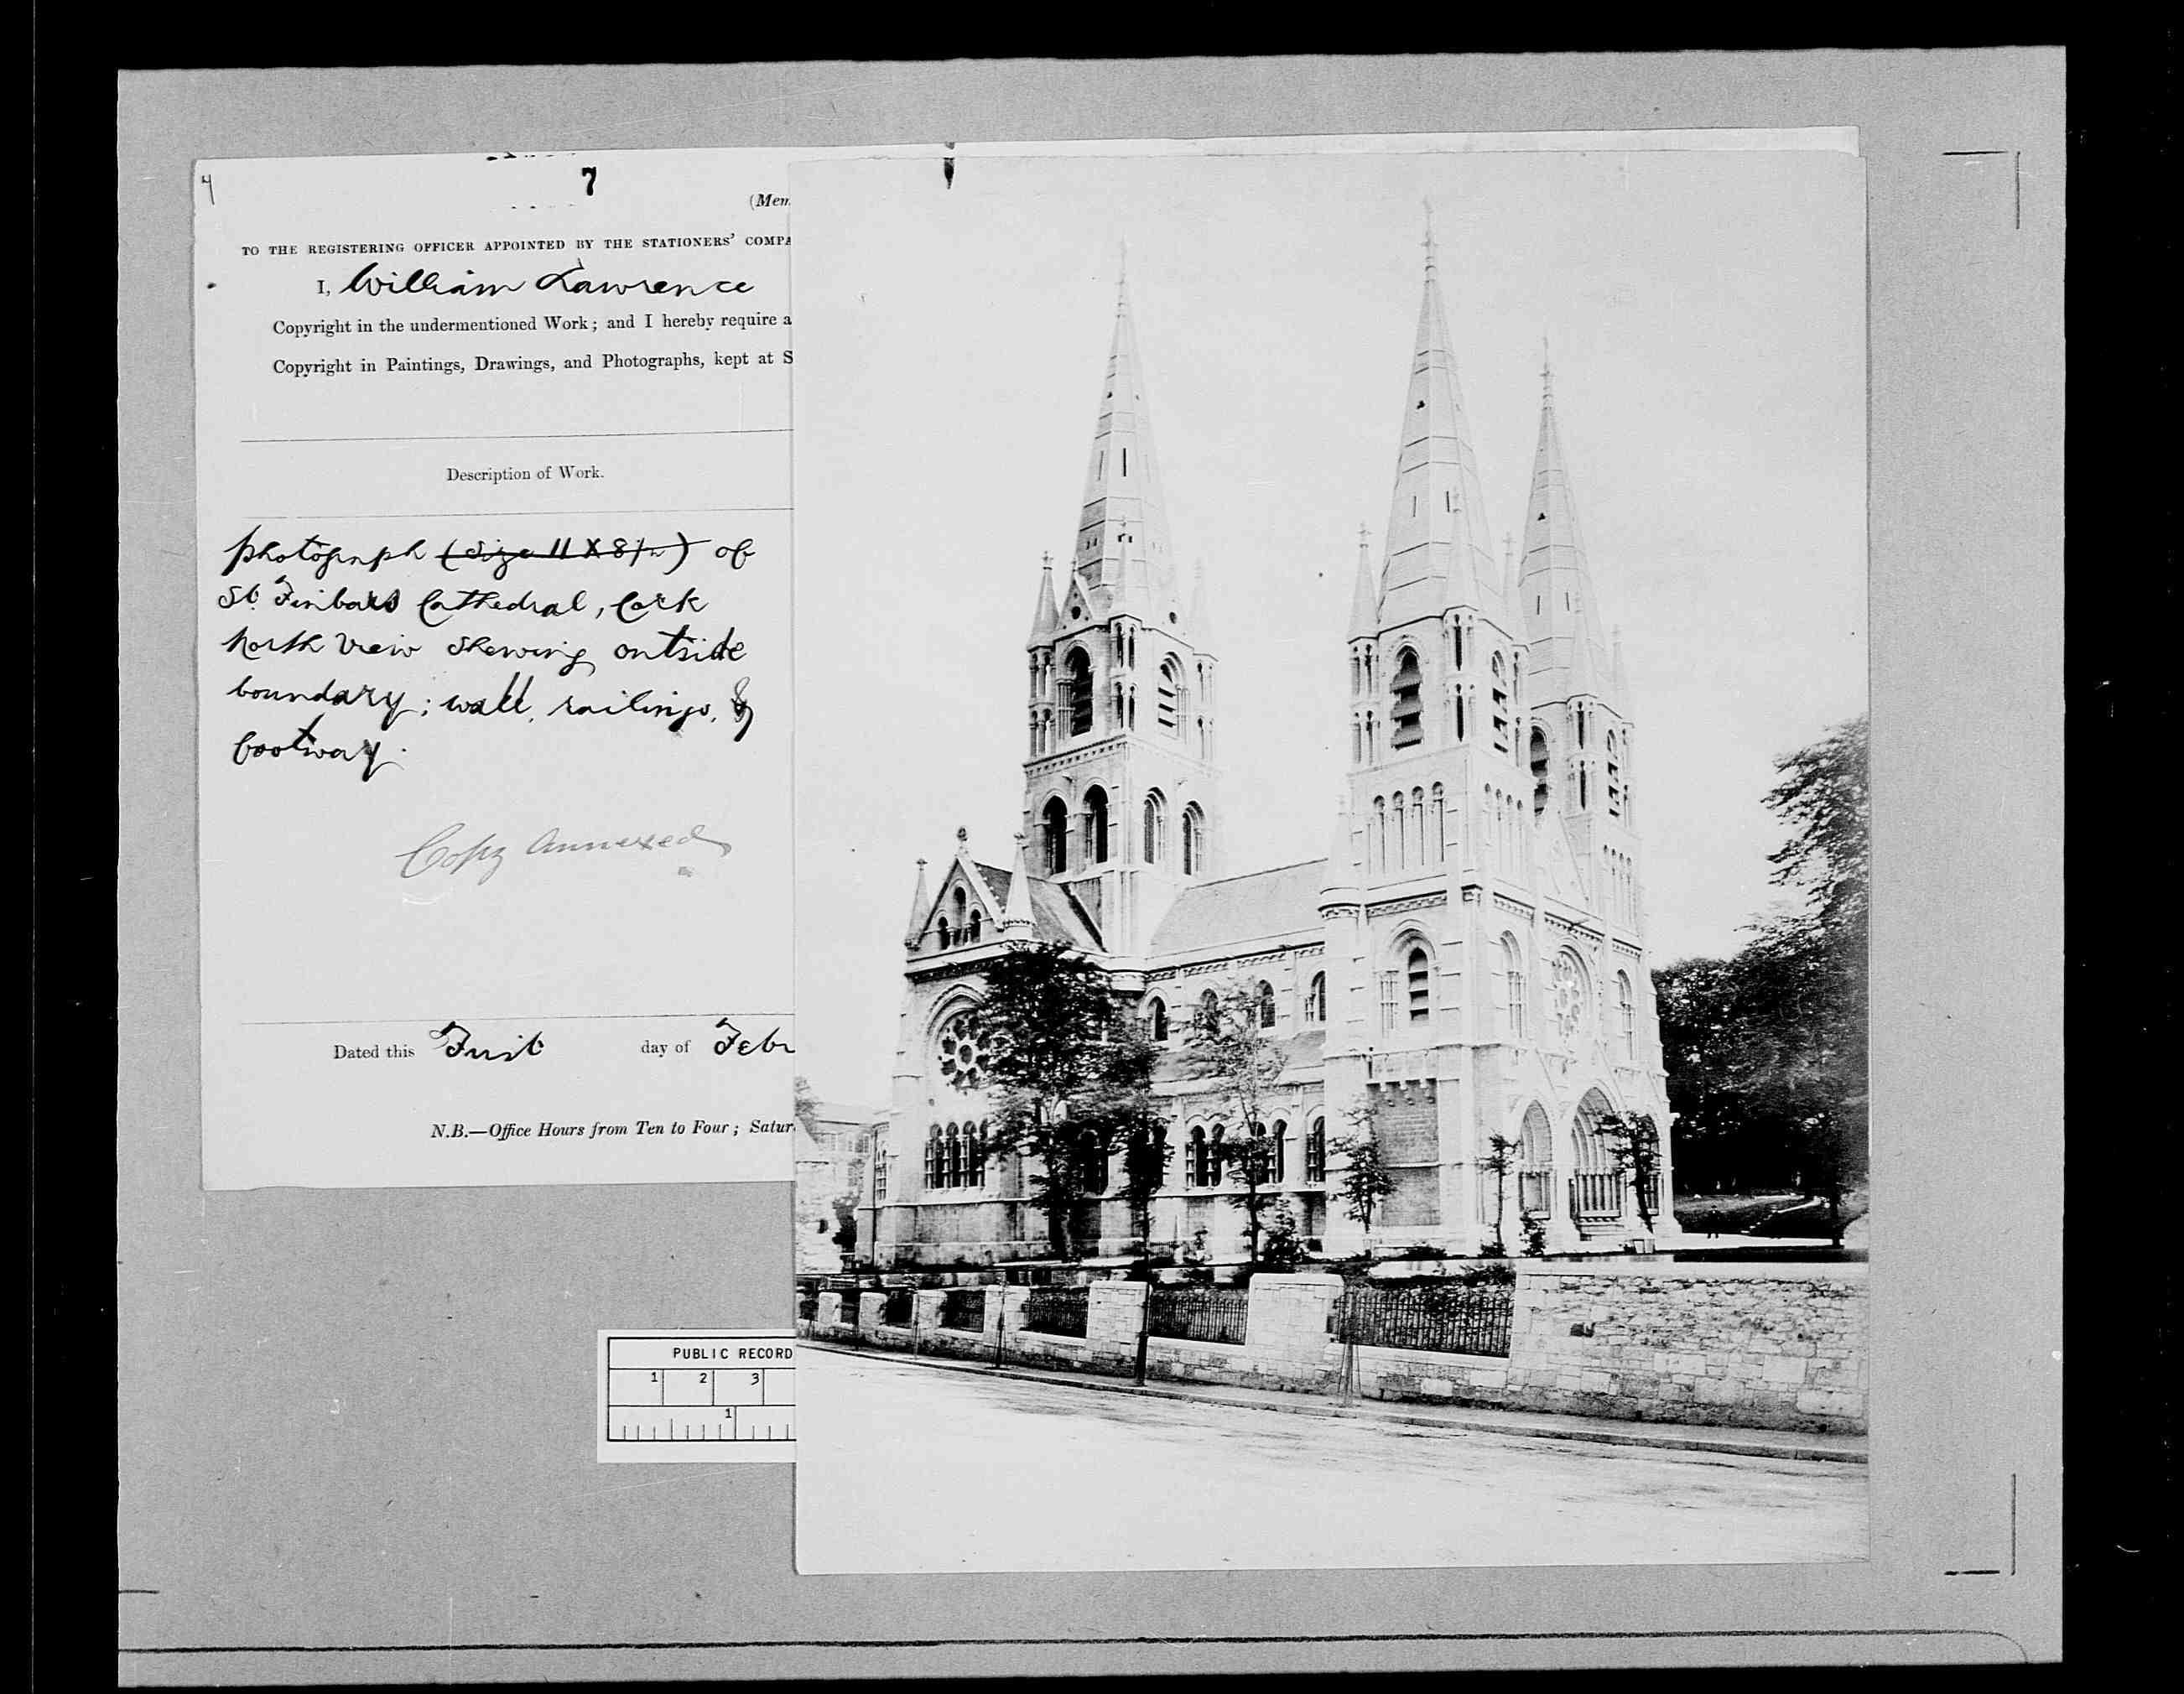 7
(Mem
TO THE REGISTERING OFFICER APPOINTED BY THE STATIONERS' COMPA
I, William Lawrence
Copyright in the undermentioned Work; and I hereby require a
Copyright in Paintings, Drawings, and Photographs, kept at S
Description of Work.
photograph (Size 11 X 8½) of
St. Finbars Cathedral, Cork
North View Shewing outside
boundary; wall, railings, &
footway.
Copy Annexed
Dated this First day of Febr
N.B.—Office Hours from Ten to Four; Satur
PUBLIC RECORD
1 2 3
1